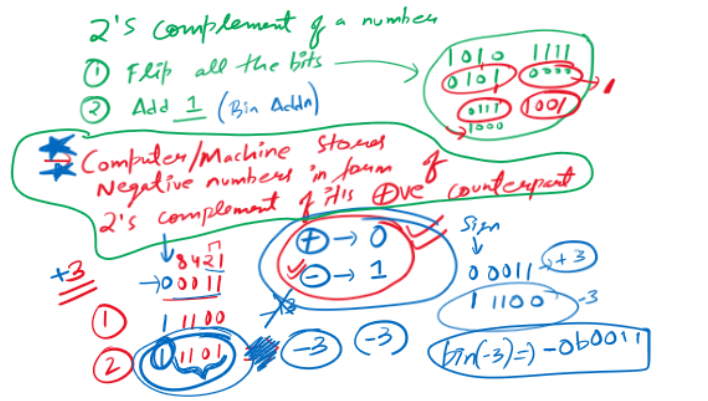 2's complement of a number
① Flip all the bits →
② Add 1 (Bin Addn)
1010 1111
0101 0000
0111 1001
1000
Computer/Machine stores
Negative numbers in form of
2's complement of its ⊕ve counterpart
⊕ → 0
⊖ → 1
+3
8421
→ 0 0011
① 1 1100
② 1 1101
-3 (-3)
Sign
0 0011 → +3
1 1100 -3
bin(-3) => -0b0011